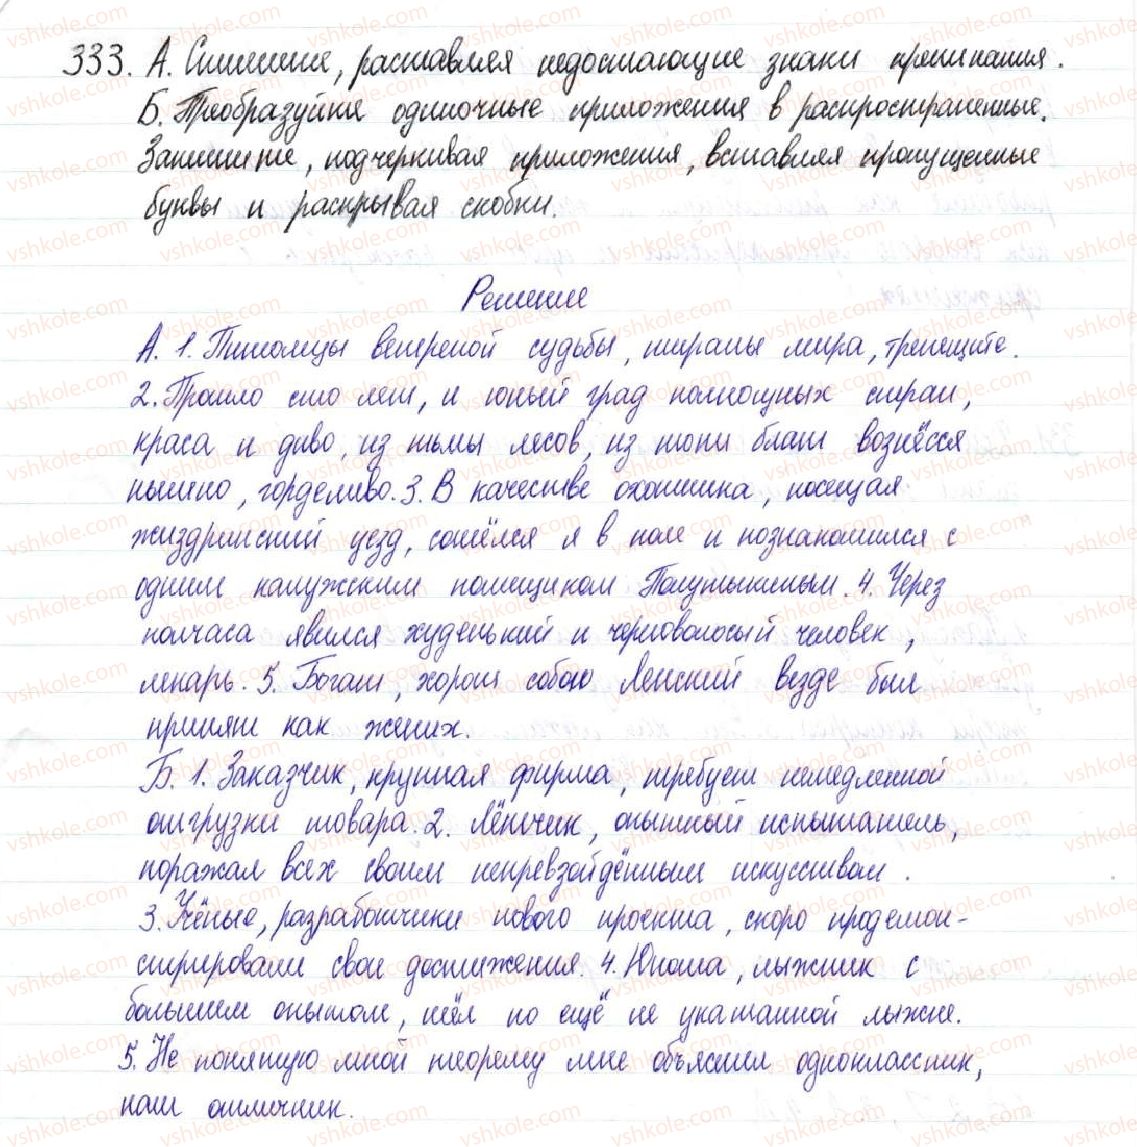 333. А. Спишите, расставляя недостающие знаки препинания.
Б. Преобразуйте одиночные приложения в распространенные.
Запишите, подчеркивая приложения, вставляя пропущенные
буквы и раскрывая скобки.
Решение
А. 1. Питомцы ветреной судьбы, тираны мира, трепещите.
2. Прошло сто лет, и юный град полнощных стран,
краса и диво, из тьмы лесов, из топи блат вознёсся
пышно, горделиво. 3. В качестве охотника, посещая
жиздринский уезд, сошёлся я в поле и познакомился с
одним калужским помещиком Полутыкиным. 4. Через
полчаса явился худенький и черноволосый человек,
лекарь. 5. Богат, хорош собою Ленский везде был
принят как жених.
Б. 1. Заказчик, крупная фирма, требует немедленной
отгрузки товара. 2. Лётчик, опытный испытатель,
поражал всех своим непревзойдённым искусством.
3. Учёные, разработчики нового проекта, скоро продемон-
стрировали свои достижения. 4. Юноша, лыжник с
большим опытом, шёл по ещё не укатанной лыжне.
5. Не понятую мной теорему мне объяснил одноклассник,
наш отличник.